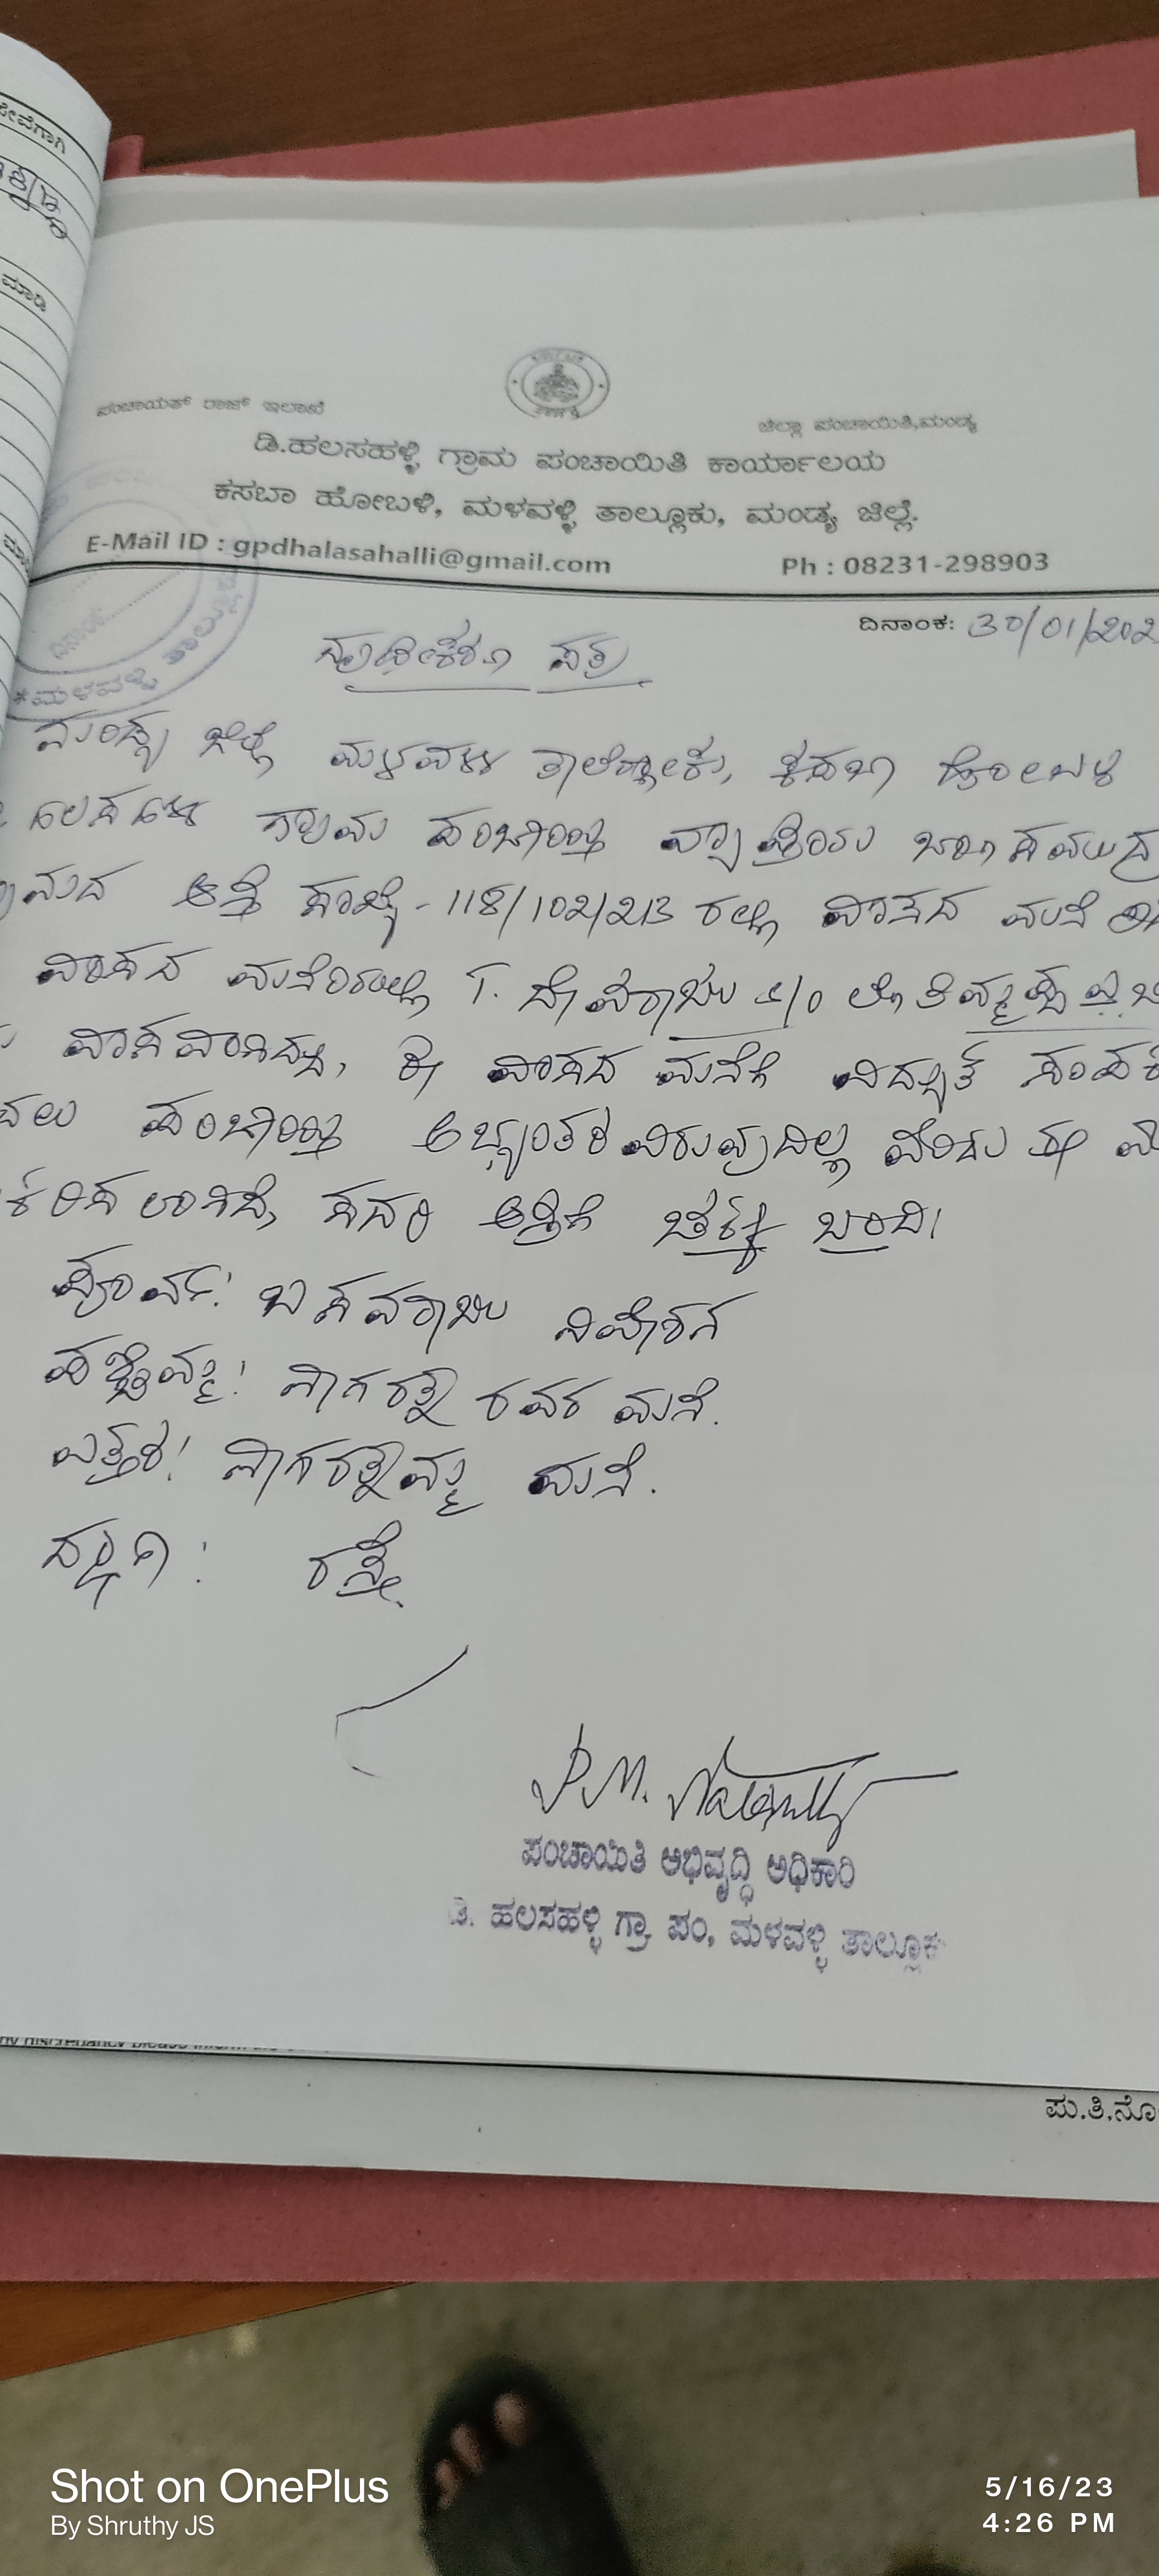 ಸೇವೆಗಾಗಿ
ಮಾಡಿ
ಪಂಚಾಯತ್ ರಾಜ್ ಇಲಾಖೆ
ಜಿಲ್ಲಾ ಪಂಚಾಯಿತಿ,ಮಂಡ್ಯ
ಡಿ.ಹಲಸಹಳ್ಳಿ ಗ್ರಾಮ ಪಂಚಾಯಿತಿ ಕಾರ್ಯಾಲಯ
ಕಸಬಾ ಹೋಬಳಿ, ಮಳವಳ್ಳಿ ತಾಲ್ಲೂಕು, ಮಂಡ್ಯ ಜಿಲ್ಲೆ.
E-Mail ID : gpdhalasahalli@gmail.com Ph : 08231-298903
ದಿನಾಂಕ: 30/01/202
ದಿನಾಂಕ
*ಮಳವಳ್ಳಿ ತಾಲ್ಲೂಕು
ದೃಢೀಕರಣ ಪತ್ರ
ಮಂಡ್ಯ ಜಿಲ್ಲೆ ಮಳವಳ್ಳಿ ತಾಲ್ಲೋಕು, ಕಸಬಾ ಹೋಬಳಿ
ಹಲಸಹಳ್ಳಿ ಗ್ರಾಮ ಪಂಚಾಯ್ತಿ ವ್ಯಾಪ್ತಿಯ
ಆಸ್ತಿ ಸಂಖ್ಯೆ-118/102/213 ರಲ್ಲಿ ವಾಸದ ಮನೆ
ವಾಸದ ಮನೆಯಲ್ಲಿ T. ದೇವರಾಜು S/O ಲೇ ತಿಮ್ಮಯ್ಯ
ವಾಸವಾಗಿದ್ದು, ಈ ವಾಸದ ಮನೆಗೆ ವಿದ್ಯುತ್ ಸಂಪರ್ಕ
ಪಂಚಾಯ್ತಿ ಅಭ್ಯಂತರವಿರುವುದಿಲ್ಲ ವೆಂದು ಈ
ಸದರಿ ಆಸ್ತಿಗೆ ಚೆಕ್ಕು ಬಂದಿ
ಪೂರ್ವ: ಬಸವರಾಜು ನಿವೇಶನ
ಪಶ್ಚಿಮ: ನಾಗರತ್ನ ರವರ ಮನೆ.
ಉತ್ತರ: ನಾಗರತ್ನಮ್ಮ ಮನೆ.
ದಕ್ಷಿಣ: ರಸ್ತೆ.
ಪಂಚಾಯಿತಿ ಅಭಿವೃದ್ಧಿ ಅಧಿಕಾರಿ
ಡಿ. ಹಲಸಹಳ್ಳಿ ಗ್ರಾ ಪಂ, ಮಳವಳ್ಳಿ ತಾಲ್ಲೂಕು
ಪು.ತಿ.ನೋ
Shot on OnePlus
By Shruthy JS
5/16/23
4:26 PM